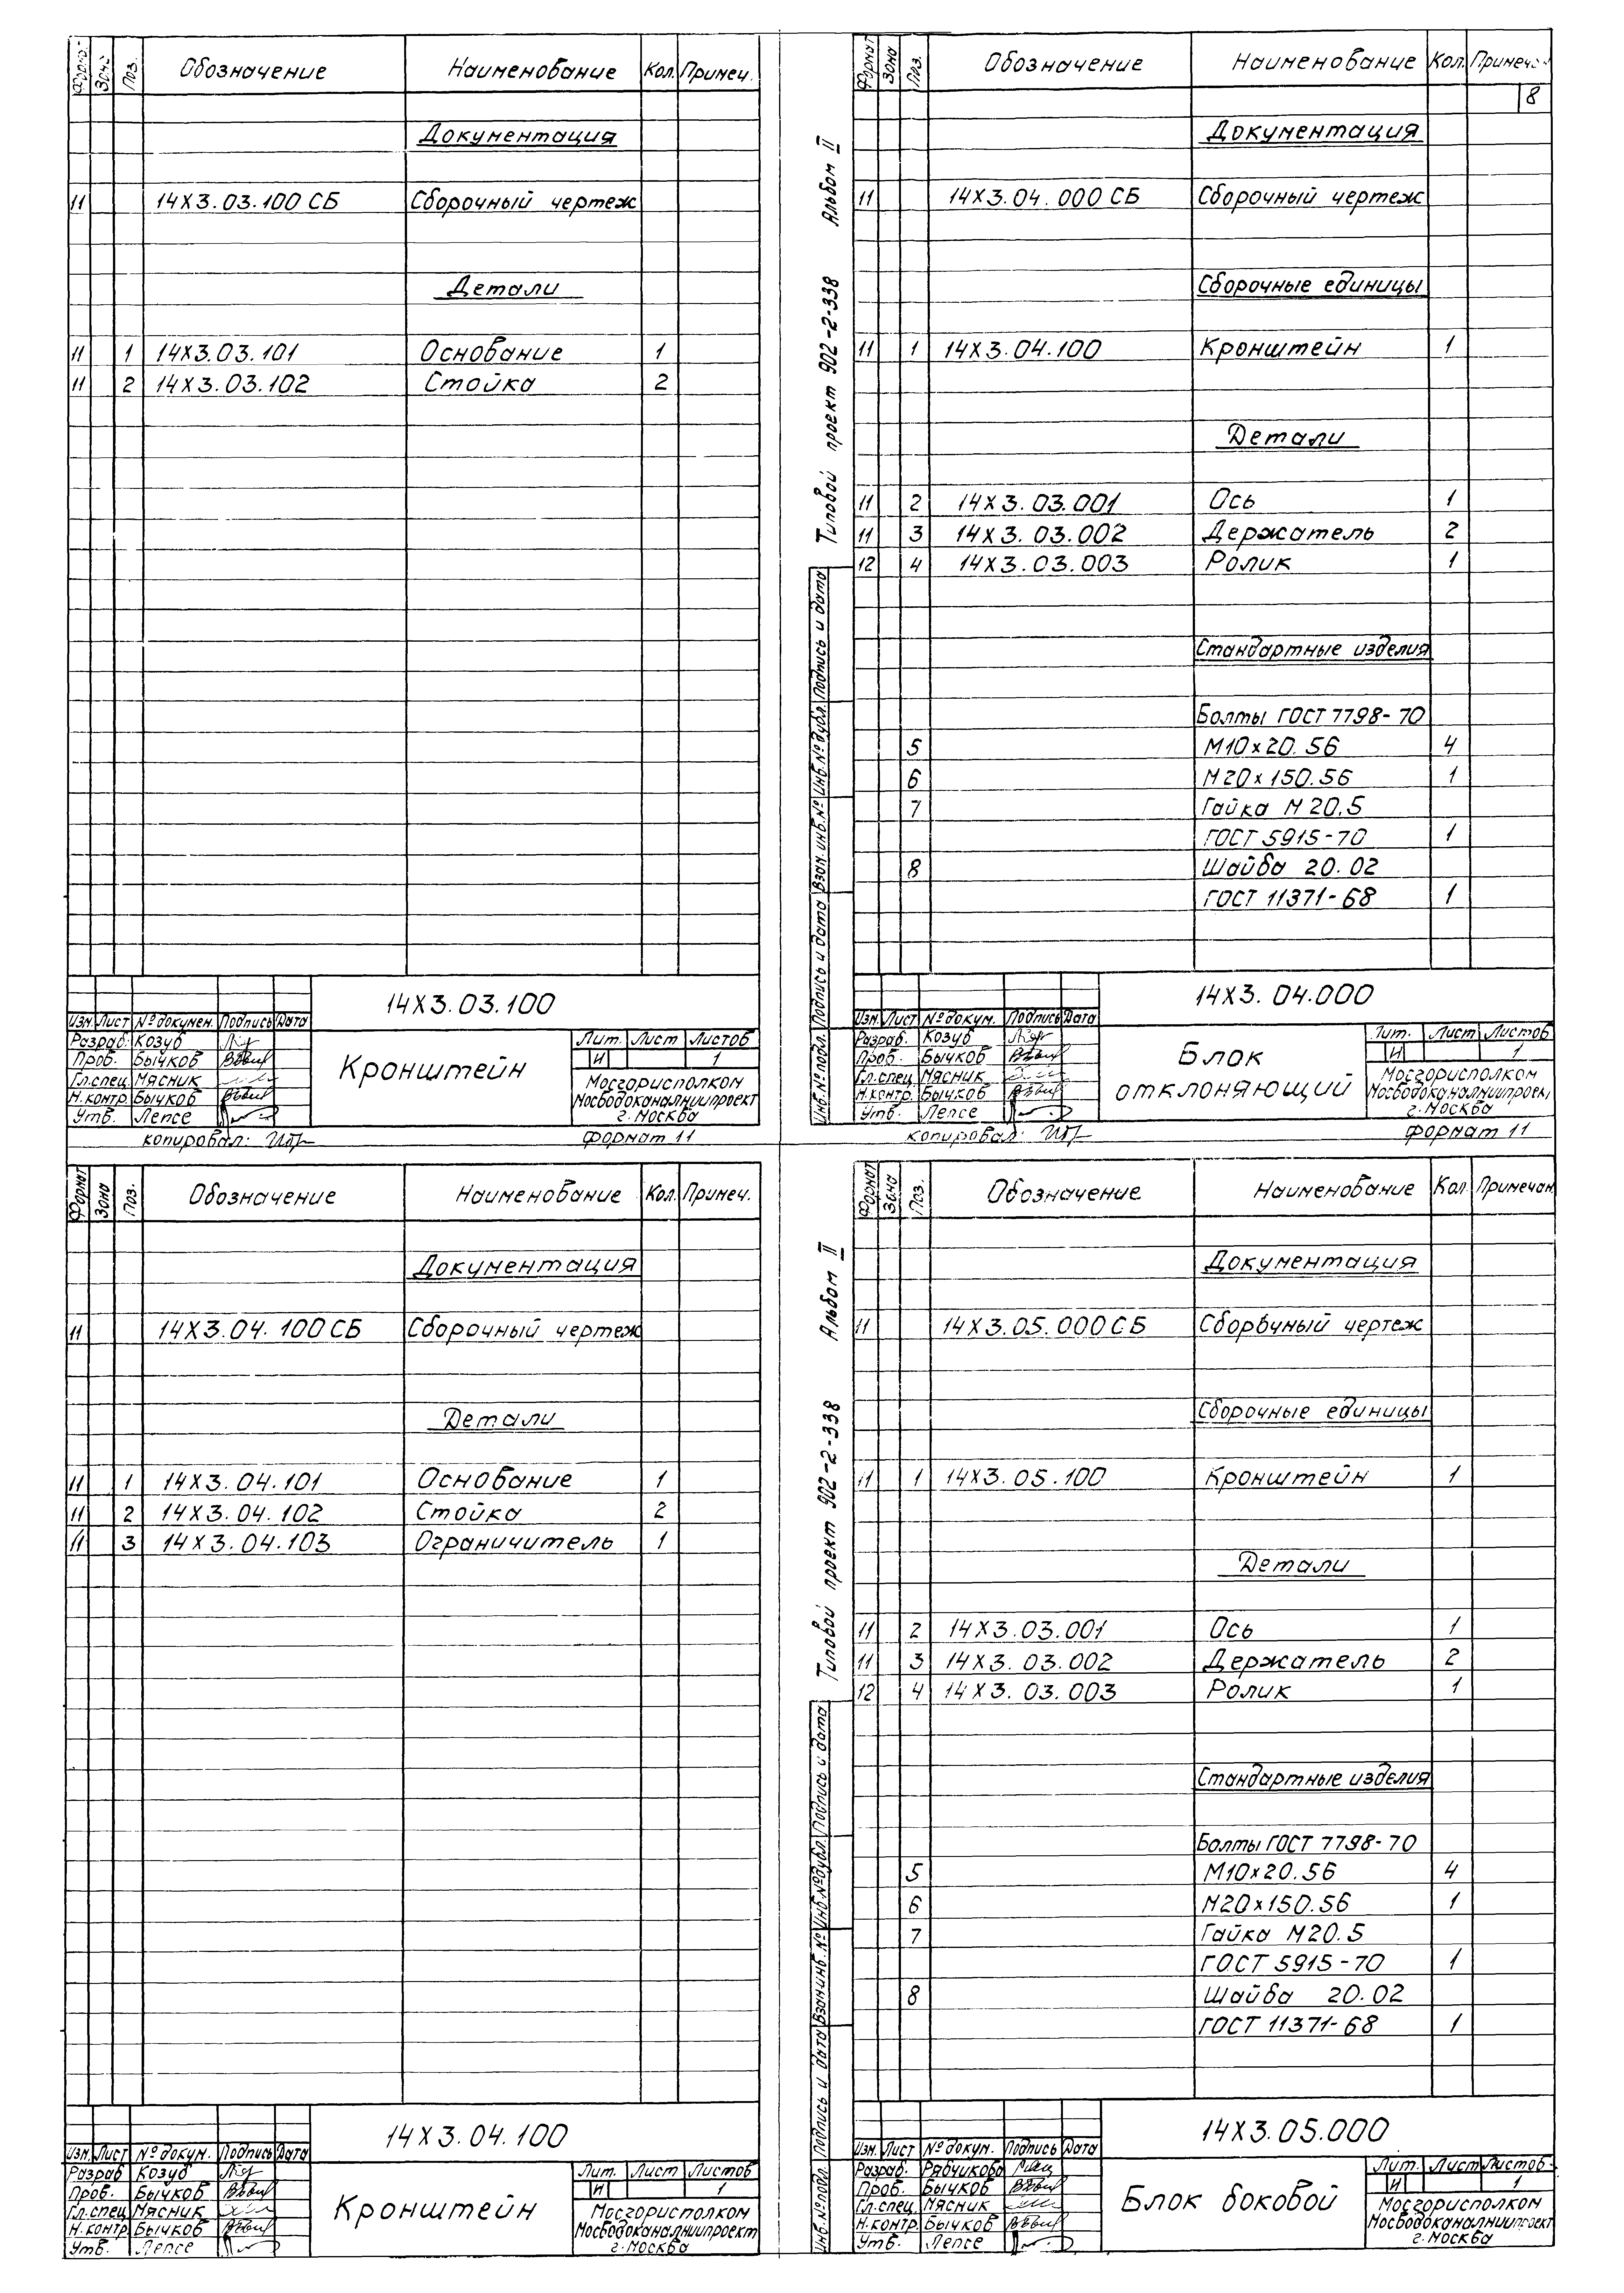 Формат Зона Поз. Обозначение Наименование Кол. Примеч.
Документация
11 14Х3.03.100 СБ Сборочный чертеж
Детали
11 1 14Х3.03.101 Основание 1
11 2 14Х3.03.102 Стойка 2
14Х3.03.100
Изм. Лист № докумен. Подпись Дата
Разраб. Козуб
Проб. Бычков
Гл.спец. Мясник
Н.контр. Бычков
Утв. Лепсе
Кронштейн
Лит. Лист Листов
И 1
Мосгорисполком
Мосводоканалниипроект
г. Москва
копировал:
формат 11
Формат Зона Поз. Обозначение Наименование Кол. Примечан
8
Документация
11 14Х3.04.000 СБ Сборочный чертеж
Сборочные единицы
11 1 14Х3.04.100 Кронштейн 1
Детали
11 2 14Х3.03.001 Ось 1
11 3 14Х3.03.002 Держатель 2
12 4 14Х3.03.003 Ролик 1
Стандартные изделия
Болты ГОСТ 7798-70
5 М10х20.56 4
6 М20х150.56 1
7 Гайка М20.5
ГОСТ 5915-70 1
8 Шайба 20.02
ГОСТ 11371-68 1
Типовой проект 902-2-338 Альбом II
Инв.№ подл. Подпись и дата Взам.инв.№ Инв.№ дубл. Подпись и дата
14Х3.04.000
Изм. Лист № докум. Подпись Дата
Разраб. Козуб
Проб. Бычков
Гл.спец. Мясник
Н.контр. Бычков
Утв. Лепсе
Блок
отклоняющий
Лит. Лист Листов
И 1
Мосгорисполком
Мосводоканалниипроек
г. Москва
копировал:
формат 11
Формат Зона Поз. Обозначение Наименование Кол. Примеч.
Документация
11 14Х3.04.100 СБ Сборочный чертеж
Детали
11 1 14Х3.04.101 Основание 1
11 2 14Х3.04.102 Стойка 2
11 3 14Х3.04.103 Ограничитель 1
14Х3.04.100
Изм. Лист № докум. Подпись Дата
Разраб Козуб
Проб. Бычков
Гл.спец. Мясник
Н.контр. Бычков
Утв. Лепсе
Кронштейн
Лит. Лист Листов
И 1
Мосгорисполком
Мосводоканалниипроект
г. Москва
Формат Зона Поз. Обозначение Наименование Кол. Примечан.
Документация
11 14Х3.05.000 СБ Сборочный чертеж
Сборочные единицы
11 1 14Х3.05.100 Кронштейн 1
Детали
11 2 14Х3.03.001 Ось 1
11 3 14Х3.03.002 Держатель 2
12 4 14Х3.03.003 Ролик 1
Стандартные изделия
Болты ГОСТ 7798-70
5 М10х20.56 4
6 М20х150.56 1
7 Гайка М20.5
ГОСТ 5915-70 1
8 Шайба 20.02
ГОСТ 11371-68 1
Типовой проект 902-2-338 Альбом II
Инв.№ подл. Подпись и дата Взам.инв.№ Инв.№ дубл. Подпись и дата
14Х3.05.000
Изм. Лист № докум. Подпись Дата
Разраб. Рябчикова
Проб. Бычков
Гл.спец. Мясник
Н.контр. Бычков
Утв. Лепсе
Блок боковой
Лит. Лист Листов
И 1
Мосгорисполком
Мосводоканалниипроект
г. Москва